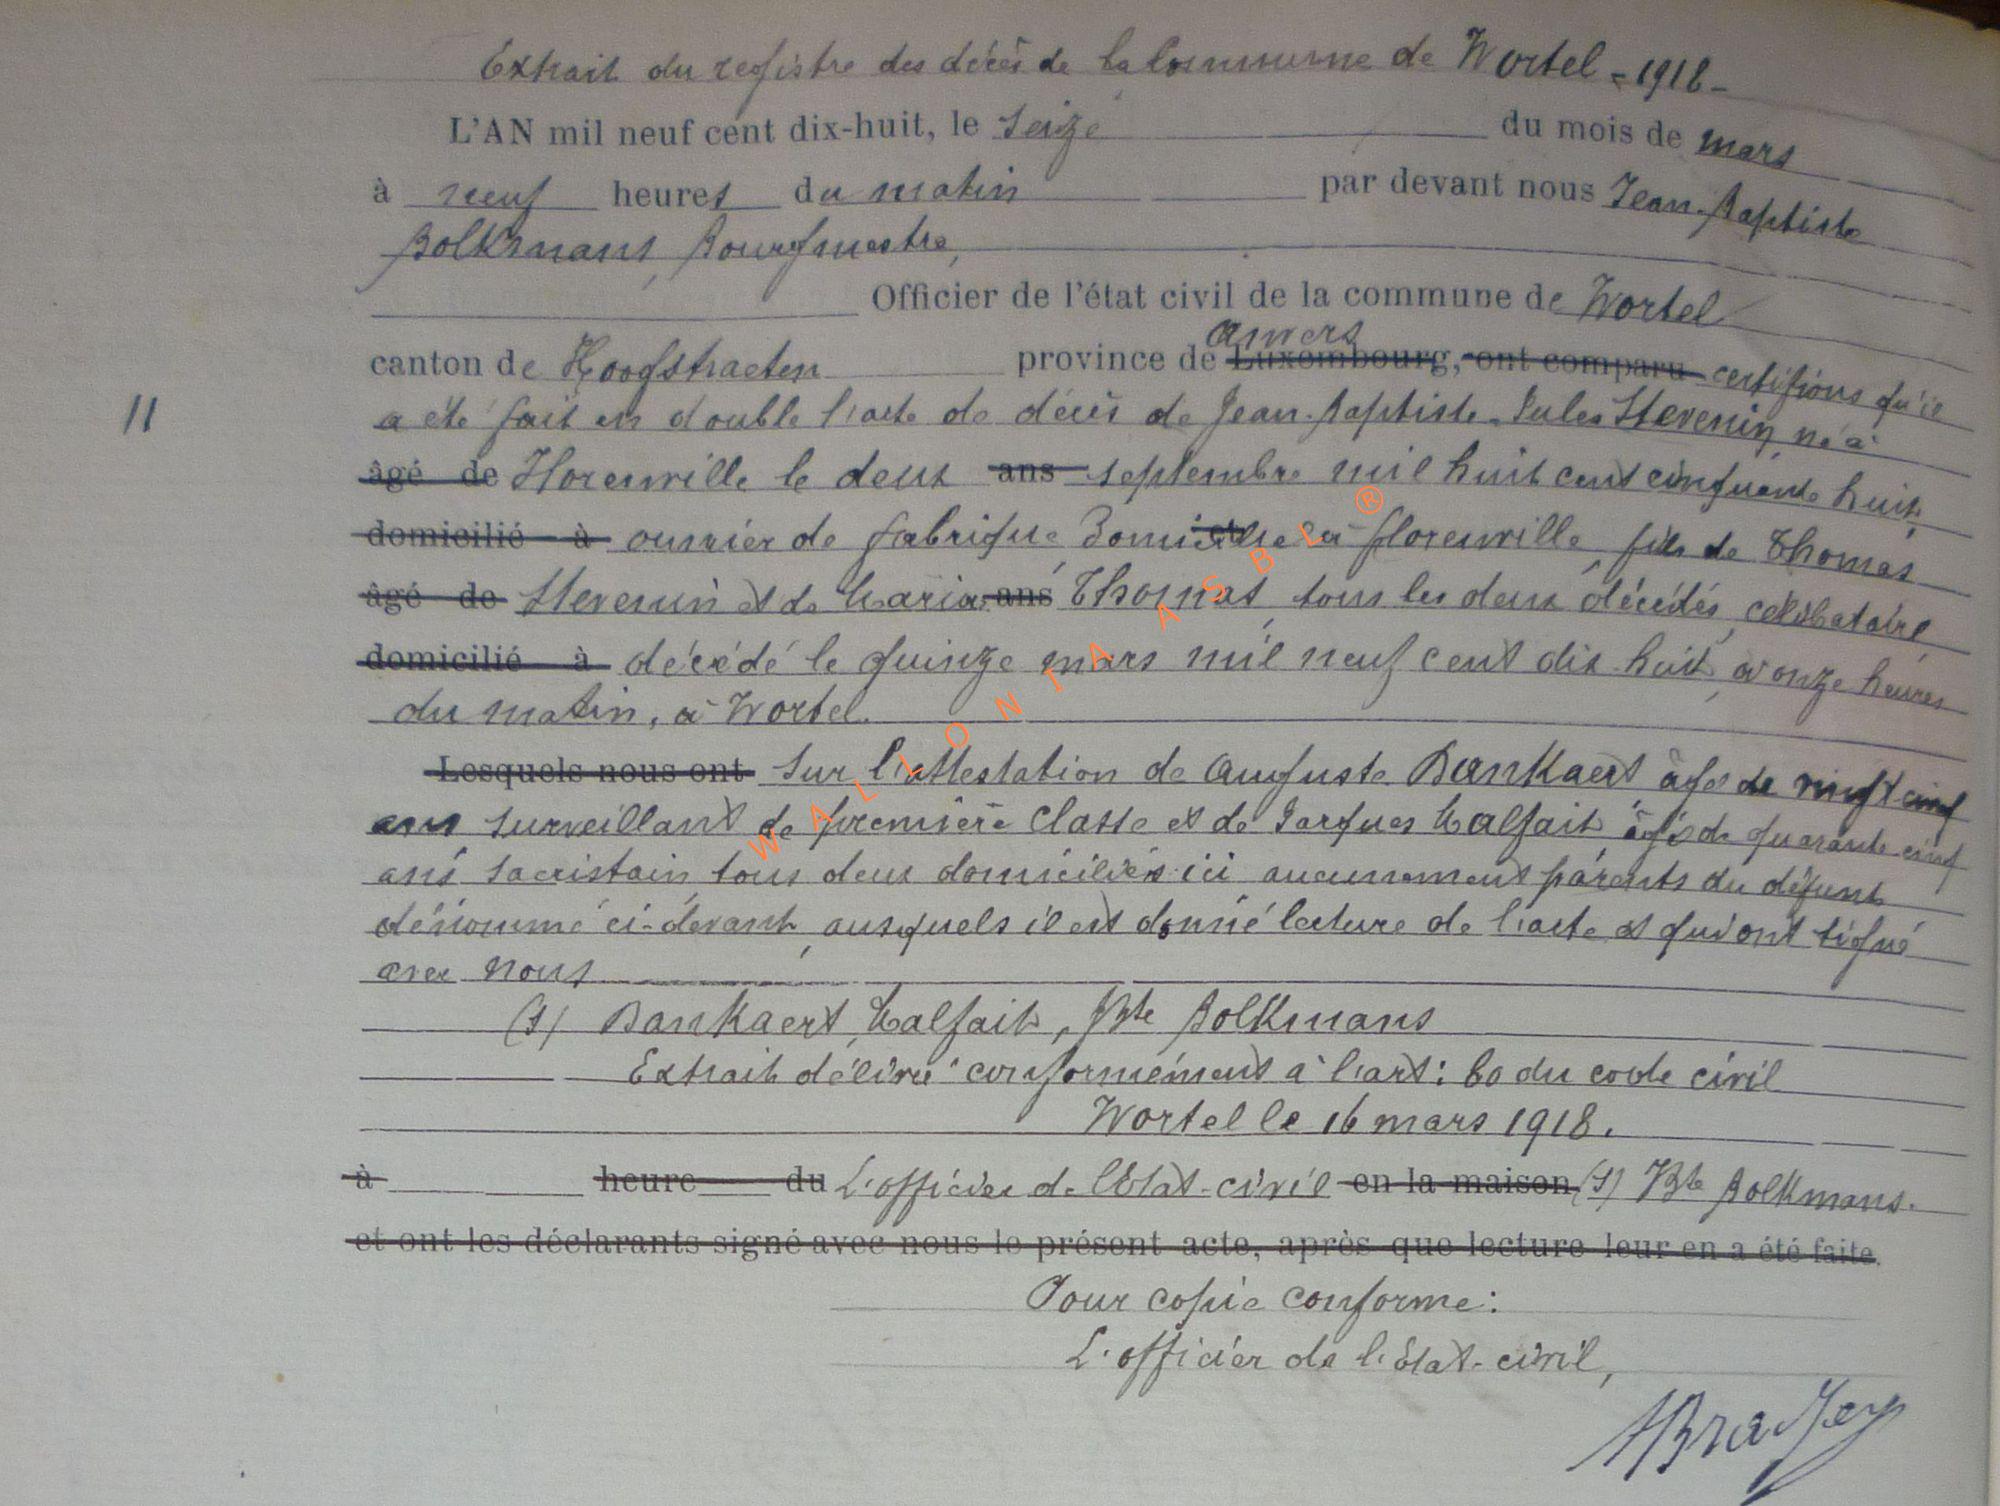 Extrait du registre des décès de la Commune de Wortel - 1918 -
L'AN mil neuf cent dix-huit, le seize du mois de mars
à neuf heures du matin par devant nous Jean-Baptiste
Bolkmans, Bourgmestre,
Officier de l'état civil de la commune de Wortel
anvers
canton de Hoogstraeten province de Luxembourg, ont comparu certifions qu'il
11
a été fait en double l'acte de décès de Jean-Baptiste-Jules Stevenin, né à
âgé de Florenville le deux ans septembre mil huit cent cinquante huit,
domicilié à ouvrier de fabrique, Domicilié à Florenville, fils de Thomas
âgé de Stevenin et de Maria ans Thomas, tous les deux décédés, célibataire,
domicilié à décédé le quinze mars mil neuf cent dix huit, à onze heures
du matin, à Wortel.
Lesquels nous ont sur l'attestation de Auguste Bankaert âgé de vingt cinq
ans surveillant de première classe et de Jacques Malfait, âgé de quarante cinq
ans sacristain, tous deux domiciliés ici aucunement parents du défunt
dénommé ci-devant, auxquels il est donné lecture de l'acte et qui ont signé
avec nous
(s) Bankaert, Malfait, JBte Bolkmans
Extrait délivré conformément à l'art: 80 du code civil
Wortel le 16 mars 1918.
à heure du L'officier de l'Etat-civil en la maison (s) JBte Bolkmans.
et ont les déclarants signé avec nous le présent acte, après que lecture leur en a été faite.
Pour copie conforme:
L'officier de l'Etat-civil,
WALLONIA ASBL ®